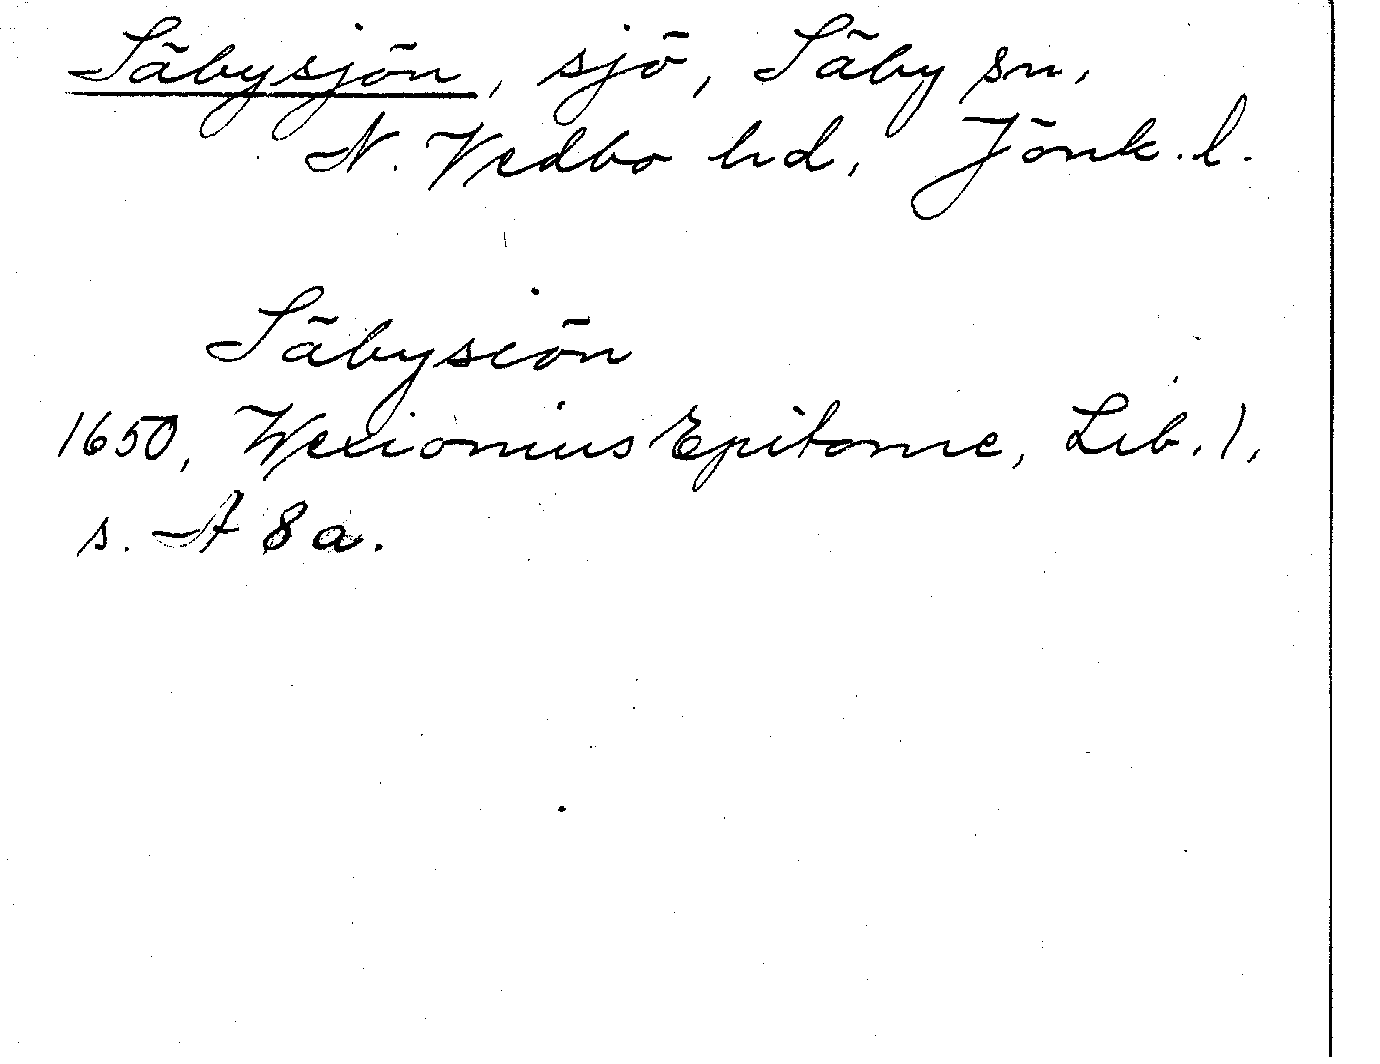 Säbysjön, sjö, Säby sn,
N. Vedbo hd, Jönk. l.
Säbysiön
1650, Wexionius Epitome, Lib. 1,
s. A 8 a.